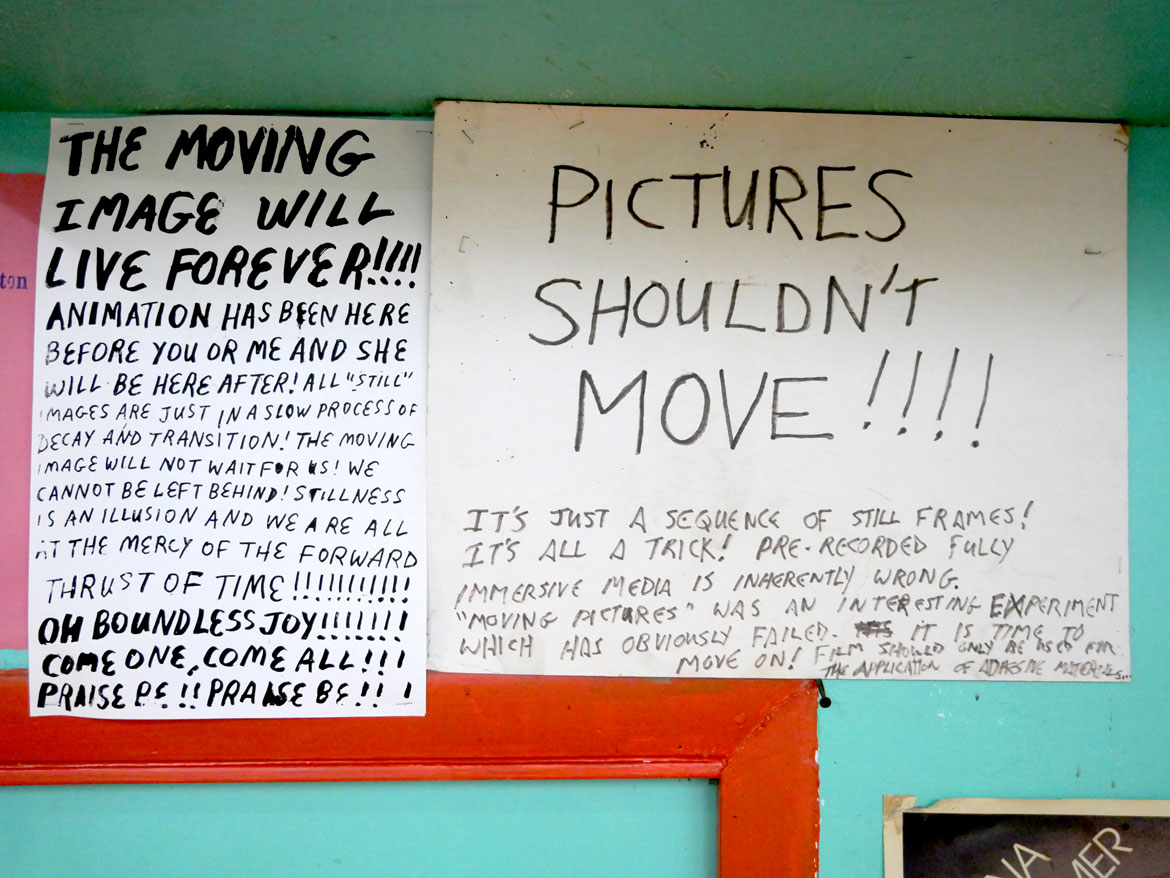 THE MOVING
IMAGE WILL
LIVE FOREVER!!!!
ANIMATION HAS BEEN HERE
BEFORE YOU OR ME AND SHE
WILL BE HERE AFTER! ALL "STILL"
IMAGES ARE JUST IN A SLOW PROCESS OF
DECAY AND TRANSITION! THE MOVING
IMAGE WILL NOT WAIT FOR US! WE
CANNOT BE LEFT BEHIND! STILLNESS
IS AN ILLUSION AND WE ARE ALL
AT THE MERCY OF THE FORWARD
THRUST OF TIME!!!!!!!!!!!
OH BOUNDLESS JOY!!!!!!!
COME ONE, COME ALL!!!!
PRAISE BE!! PRAISE BE!! !
PICTURES
SHOULDN'T
MOVE!!!!
IT'S JUST A SEQUENCE OF STILL FRAMES!
IT'S ALL A TRICK! PRE-RECORDED FULLY
IMMERSIVE MEDIA IS INHERENTLY WRONG.
"MOVING PICTURES" WAS AN INTERESTING EXPERIMENT
WHICH HAS OBVIOUSLY FAILED. IT IS TIME TO
MOVE ON! FILM SHOULD ONLY BE USED FOR
THE APPLICATION OF ADHESIVE MATERIALS...
ton
NA
MER